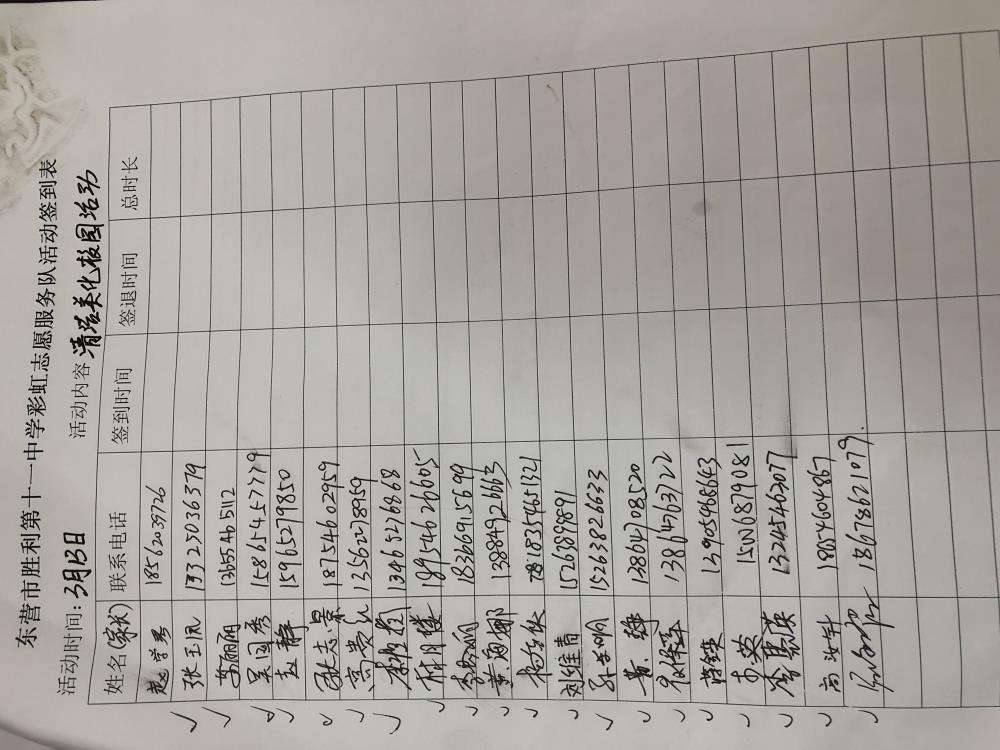 东营市胜利第十一中学彩虹志愿服务队活动签到表
活动时间：3月13日 活动内容 清洁美化校园活动
姓名(家长) 联系电话 签到时间 签退时间 总时长
18562039726
张玉凤 13325036379
丽丽 13655465112
吴国秀 15865457779
赵静 15965279850
张志景 18754602959
高贵 13562278959
13465276868
林月楼 18954626605
18366915699
黄海娜 13884926663
杨 18354651321
刘维青 15263899891
孙 15263826633
黄 13864708520
徐保 13864763722
薛 13905468643
英 15006879081
李慕英 13245462077
高 18654604867
18678621079.